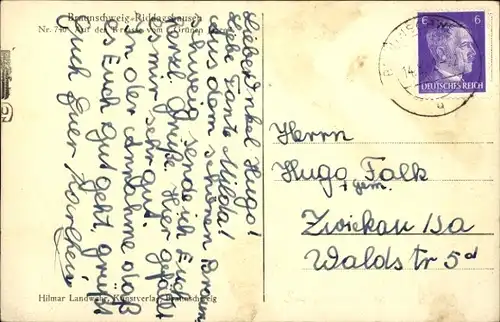 Braunschweig-Riddagshausen
Nr. 740 Auf der Kreuzte vom Grünen
Lieber Onkel Hugo!
Liebe Tante Milda!
Aus dem schönen Braun-
schweig sende ich Euch
herzl. Grüße. Hier gefällt
es mir sehr gut.
In der Annahme, daß
es Euch gut geht, grüßt
Euch Euer
Hilmar Landwehr, Kunstverlag, Braunschweig
6 6
DEUTSCHES REICH
14.
Herrn
Hugo Falk
+ gem.
Zwickau i/Sa
Waldstr 5d